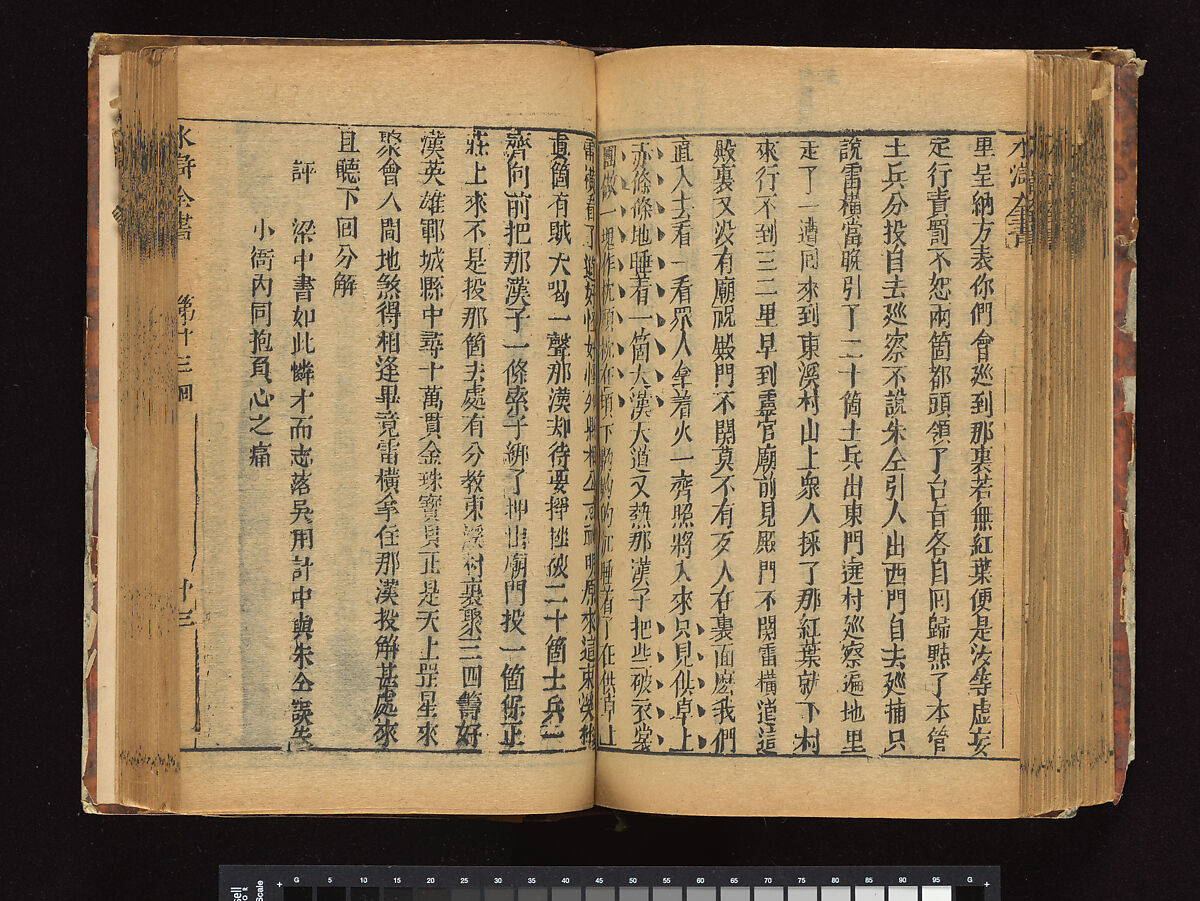 水滸全書
里呈納方表你們會廵到那裏若無紅葉便是汝等虛妄
定行責罰不恕兩箇都頭領了台旨各自囘歸㸃了本管
土兵分投自去廵察不說朱仝引人出西門自去廵捕只
說雷橫當晚引了二十箇土兵出東門遶村廵察遍地里
走了一遭囘來到東溪村山上衆人採了那紅葉就下村
來行不到三二里早到靈官廟前見殿門不關雷橫道這
殿裏又没有廟祝殿門不關莫不有歹人在裏面麽我們
直入去看一看衆人拿着火一齊照將入來只見供卓上
赤條條地睡着一箇大漢天道又熱那漢子把些破衣裳
團做一塊作枕頭枕在項下齁齁的沉睡着了在供卓上
雷橫看了道好怪好怪知縣相公
明原來這東溪村
真箇有賊大喝一聲那漢却待要掙挫被二十箇土兵一
齊向前把那漢子一條索子綁了押出廟門投一箇保正
莊上來不是投那箇去處有分教東溪村裏聚三四籌好
漢英雄鄆城縣中尋十萬貫金珠寳貝正是天上罡星來
聚會人間地煞得相逢畢竟雷橫拿住那漢投解甚處來
且聽下囘分解
評 梁中書如此憐才而志落吳用計中與朱仝誤失
小衙內同抱負心之痛
水滸全書 第十三囘 十三
G 5 10 15 20 25 30 35 40 45 50 55 60 65 70 75 80 85 90 95 G